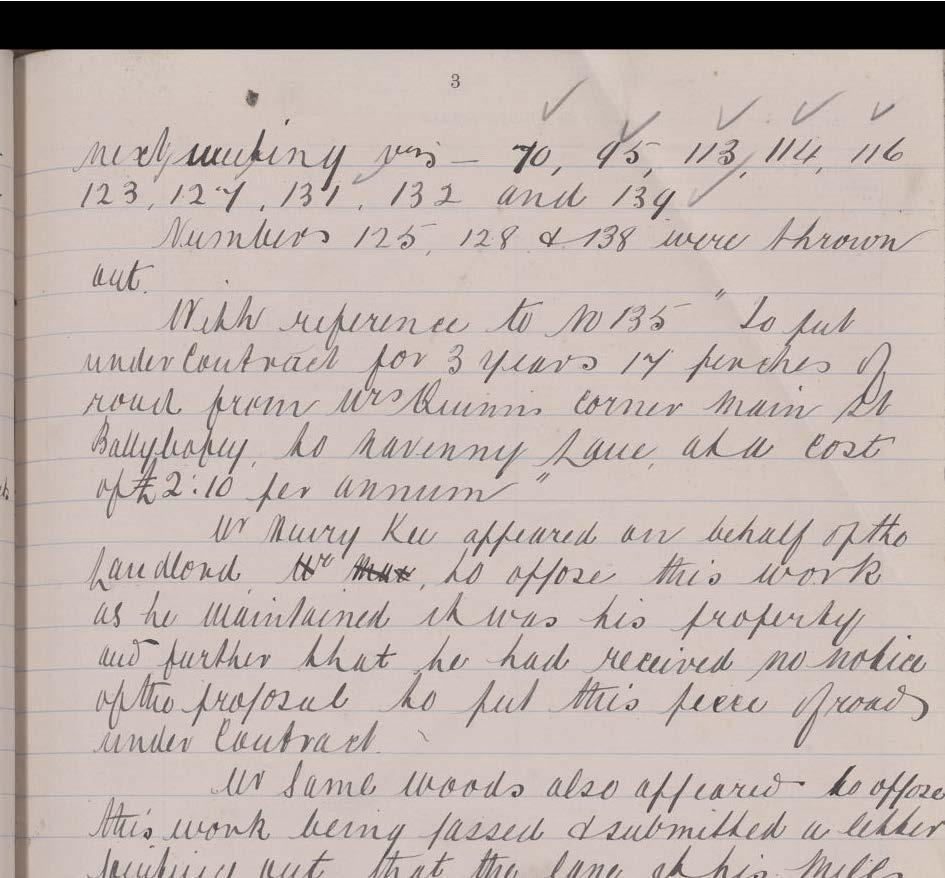 3
next meeting viz – 70, 95, 113, 114, 116
123, 127, 131, 132 and 139
Numbers 125, 128 & 138 were thrown
out.
With reference to No 135 "To put
under Contract for 3 years 17 perches of
road from Mrs Quinns corner Main St
Ballybofey, to Navenny Lane, at a cost
of £2:10 per annum"
Mr Kee appeared on behalf of the
Landlord Mr, to oppose this work
as he maintained it was his property
and further that he had received no notice
of the proposal to put this piece of road
under Contract.
Mr Saml Woods also appeared to oppose
this work being passed & submitted a letter
pointing out that the lane at his Mills